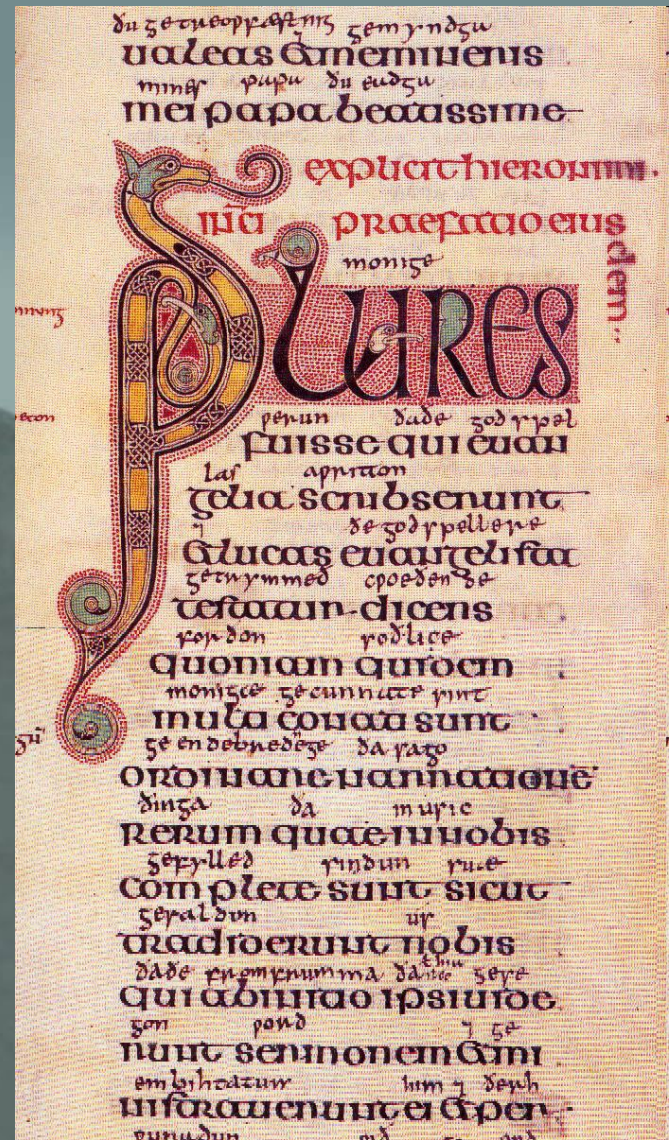 ualeas & memineris
mines papa ðu eadgu
mei papa beatissime
explicit hieronimi
incipit praefatio eius
dem
monige
PLURES
ƿerun ðaðe godspel
fuisse qui euan
las aƿritton
gelia scribserunt
⁊ ðe godspellere
& lucas euangelista
getrymmeð cƿoeðende
testatur dicens
forðon soðlice
quoniam quidem
monigæ gecunnate sint
multi conati sunt
ge endebrednege ða sago
ordinare narrationē
ðinga ða in usic
rerum quae in nobis
gefylled sindun suæ
complete sunt sicut
gesaldun us
tradiderunt nobis
ðaðe from frumma gese
qui ab initio ipsi uide
gon ƿord ⁊ ge
runt sermonem & mi
embihtatun him ⁊ ðerh
nistrauerunt ei & per